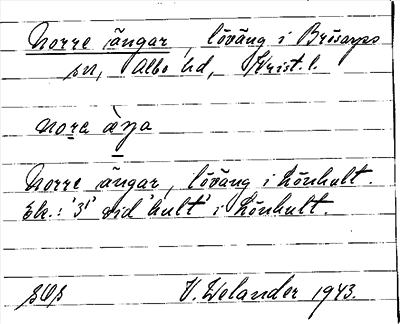 Norre ängar, löväng i Brösarps
sn, Albo hd, Krist. l.
nora àṉa
Norre ängar, löväng i Lönhult.
Ek.: '3' vid 'hult' i Lönhult.
V. Welander 1943.